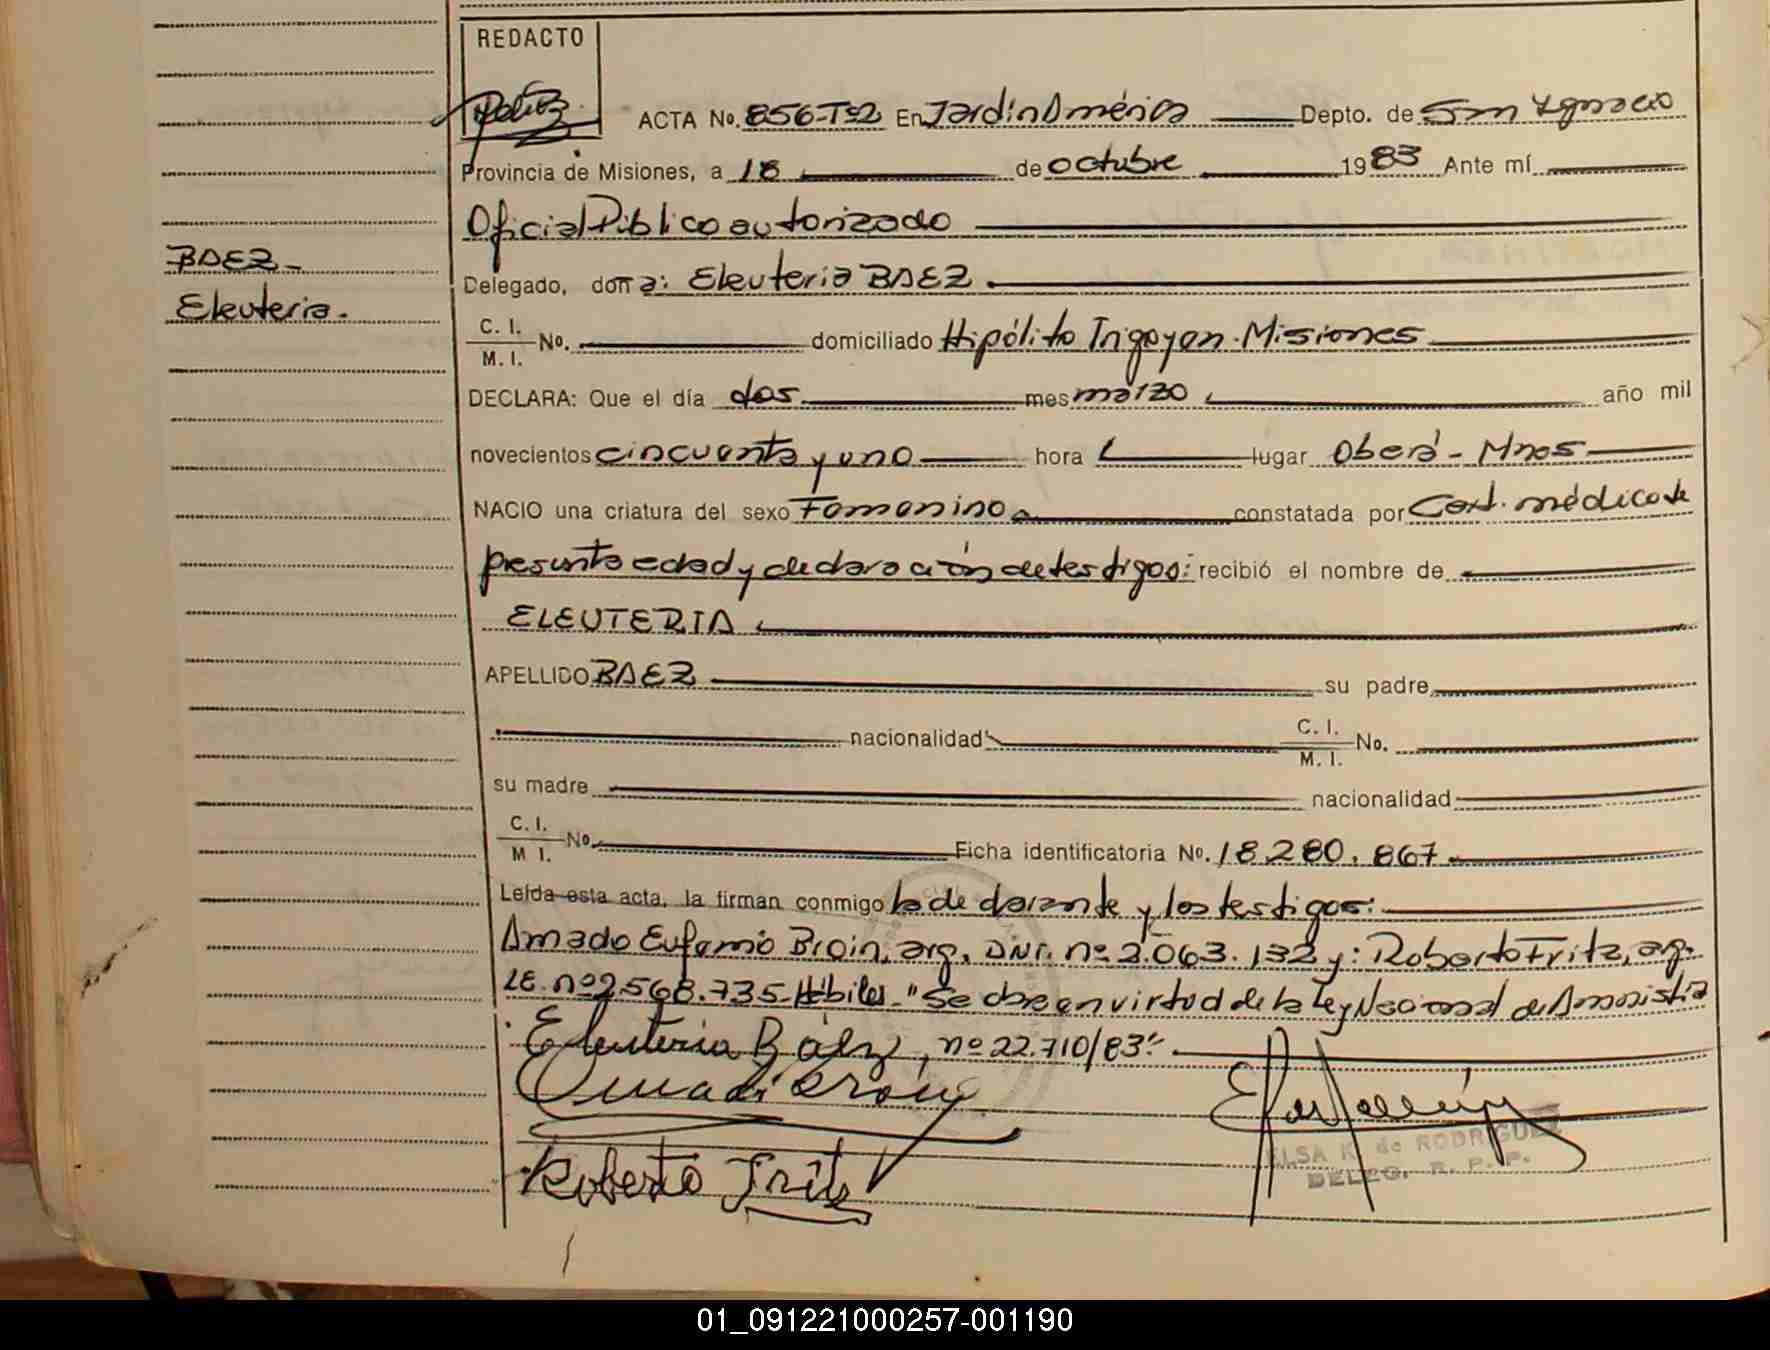 REDACTO
ACTA No. 856-Tº2 En Jardín América Depto. de San Ignacio
Provincia de Misiones, a 18 de octubre 1983 Ante mí
Oficial Público autorizado
BAEZ-
Delegado, doña: Eleuteria BAEZ
Eleuteria.-
C. I.
M. I. No. domiciliado Hipólito Irigoyen-Misiones
DECLARA: Que el día dos mes marzo año mil
novecientos cincuenta y uno hora lugar Oberá - Mnes
NACIO una criatura del sexo Femenino constatada por Cert. médico de
presunta edad y declaración de testigos: recibió el nombre de
ELEUTERIA
APELLIDO BAEZ su padre
nacionalidad C. I. M. I. No.
su madre nacionalidad
C. I. M. I. No. Ficha identificatoria No. 18.280.867
Leída esta acta, la firman conmigo la declarante y los testigos:
Amado Eufemio Broin, arg. DNI. nº 2.063.132 y: Roberto Fritz, arg.
LE. nº 2.568.735-Hábiles-"Se labra en virtud de la Ley Nacional de Amnistía
Eleuteria Báez, nº 22.710/83".
Roberto Fritz
ELSA K. de RODRIGUEZ
DELEG. R. P. P.
01_091221000257-001190